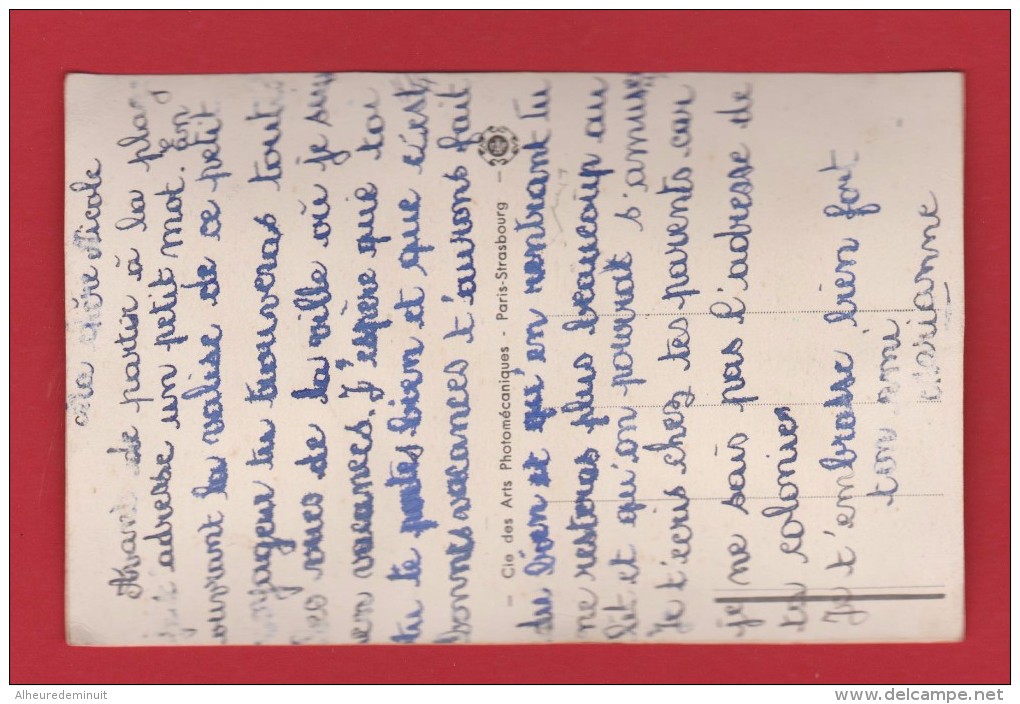 Ma chère Nicole
Avant de partir à la plage
j'adresse un petit mot. En
ouvrant la valise de ce petit
voyageur tu trouveras toutes
les vues de la ville où je suis
en vacances. J'espère que toi
tu te portes bien et que c'est
bonnes vacances t'aurons fait
du bien et qu'en rentrant tu
ne resteras plus beaucoup au
lit et qu'on pourrat s'amuser
Je t'ecris chez tes parents car
je ne sais pas l'adresse de
ta colonie
Je t'embrasse bien fort
ton ami
Marianne
- Cie des Arts Photomécaniques - Paris-Strasbourg -
Alheuredeminuit
www.delcampe.net